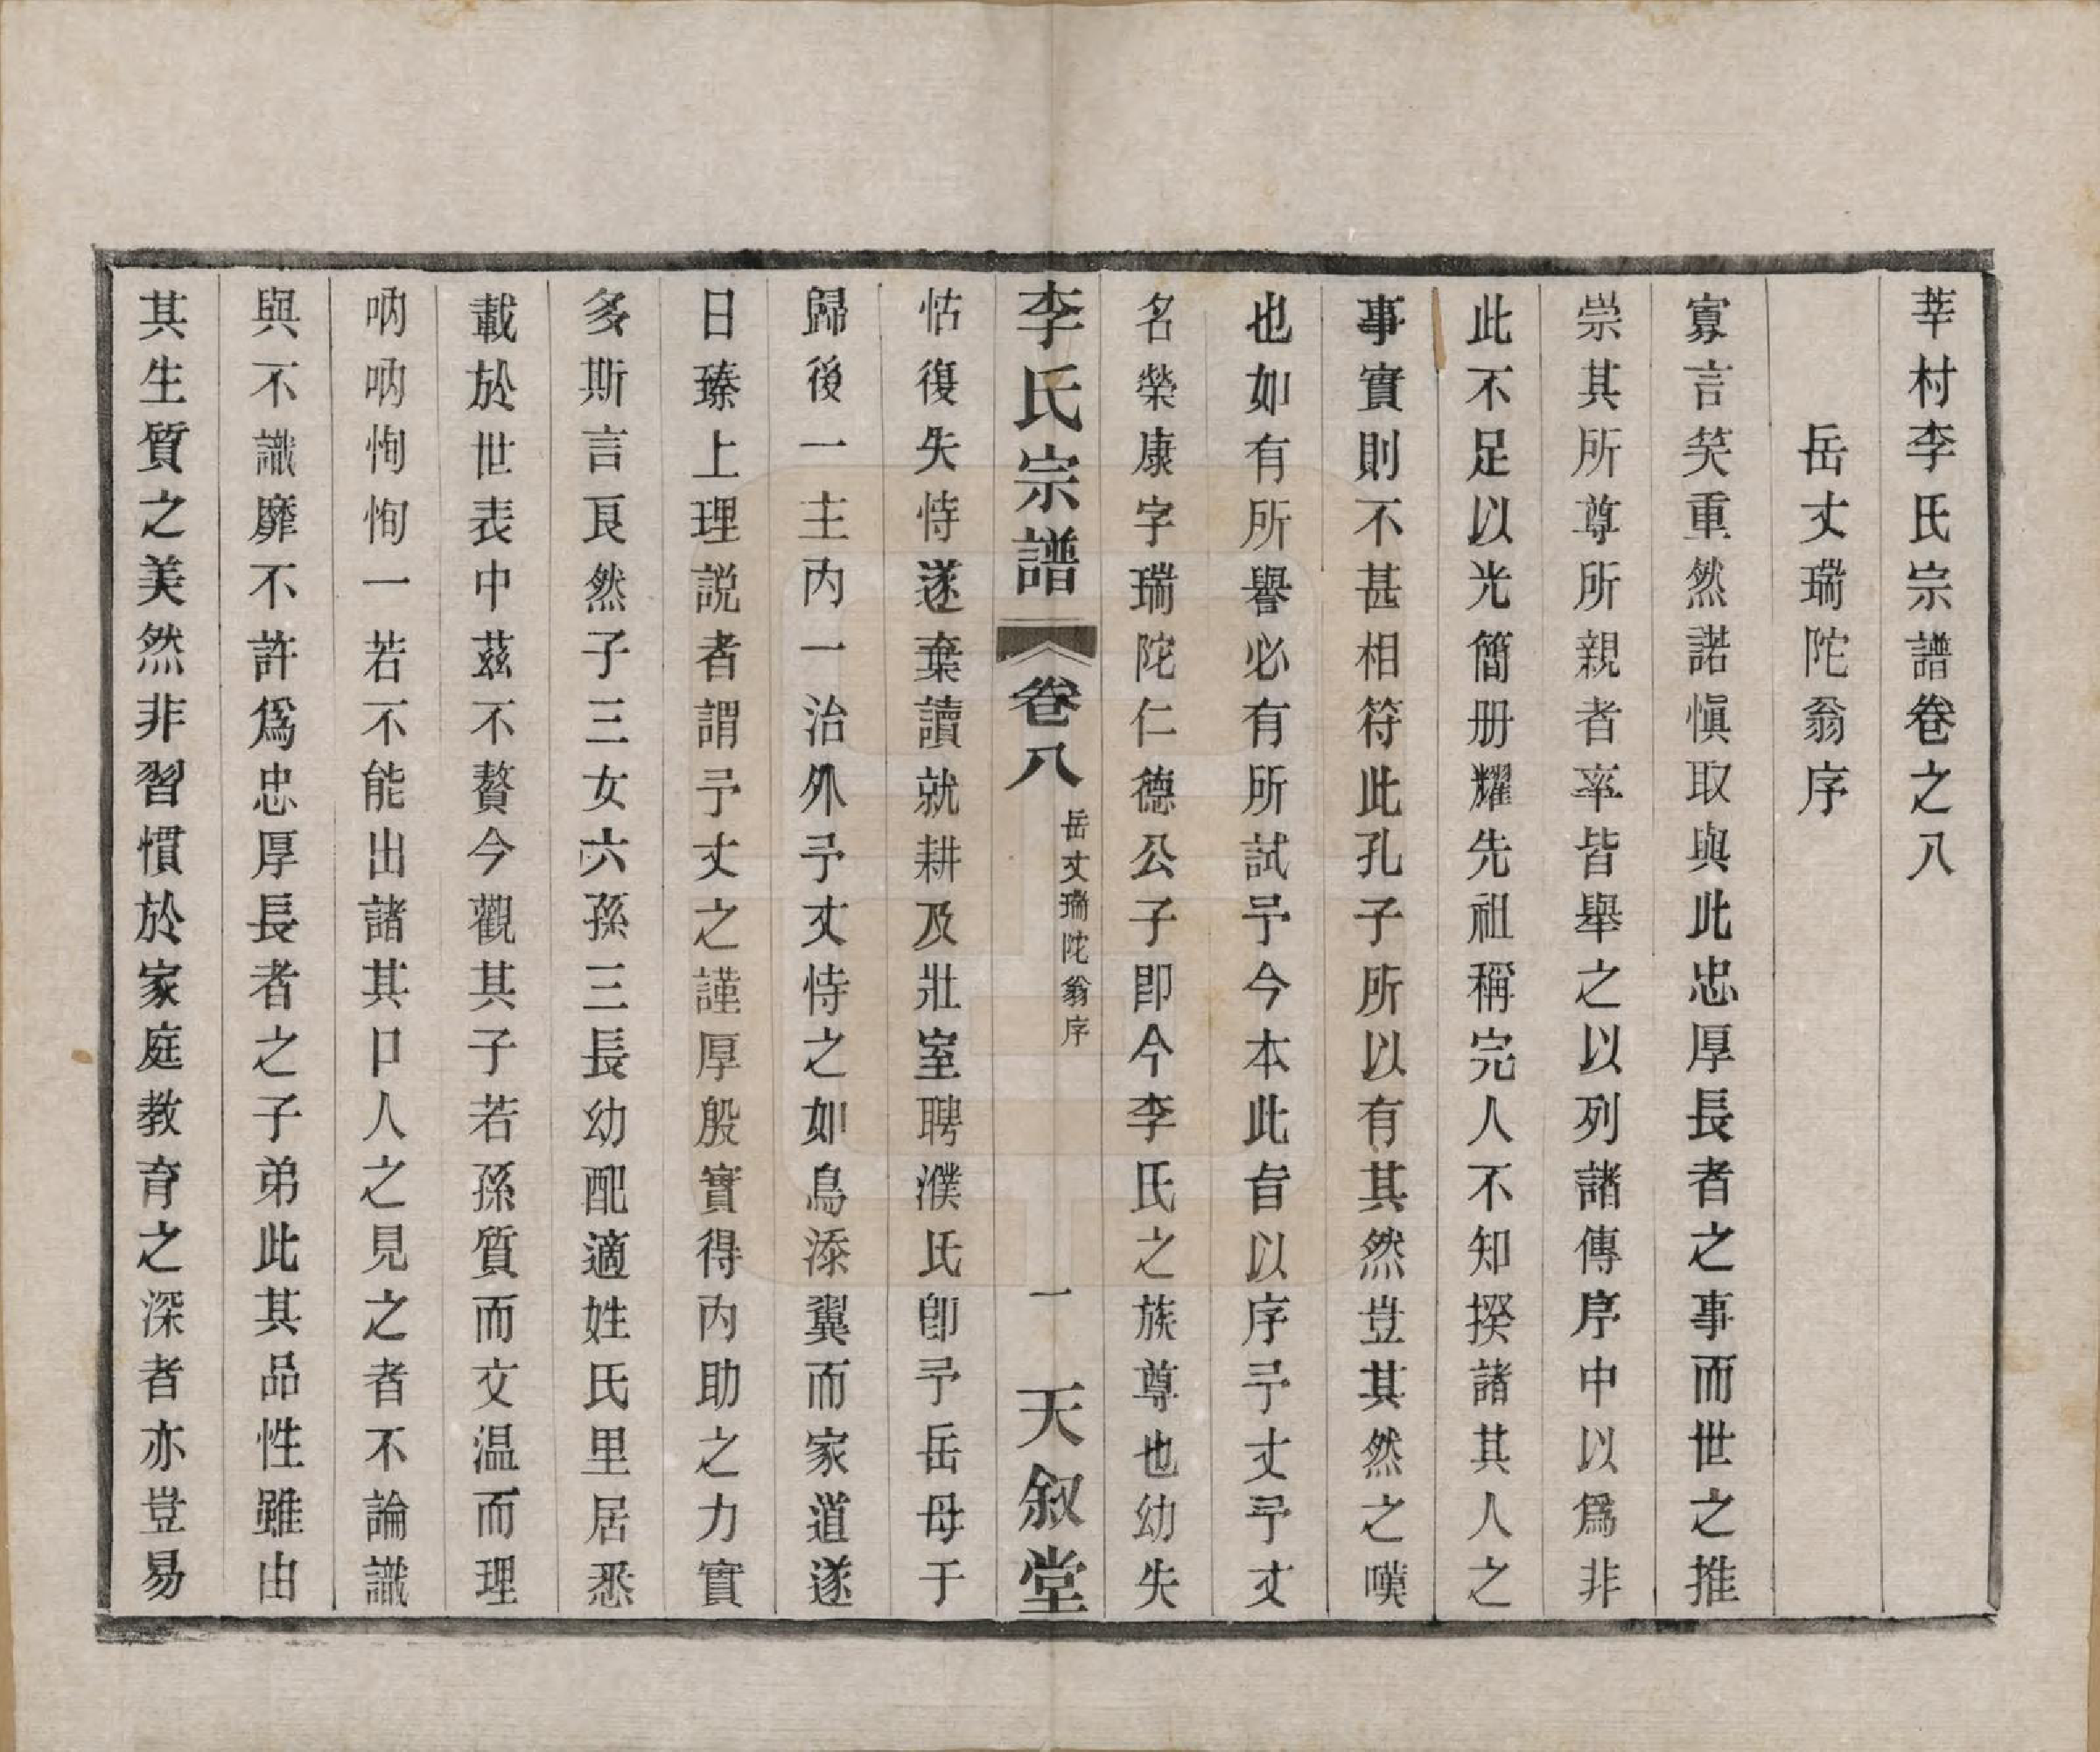 莘村李氏宗譜卷之八
岳丈瑞陀翁序
寡言笑重然諾慎取與此忠厚長者之事而世之推
崇其所尊所親者率皆舉之以列諸傳序中以爲非
此不足以光簡册耀先祖稱完人不知揆諸其人之
事實則不甚相符此孔子所以有其然豈其然之嘆
也如有所譽必有所試予今本此旨以序予丈予丈
名榮康字瑞陀仁德公子即今李氏之族尊也幼失
李氏宗譜
卷八
岳丈瑞陀翁序
一
天叙堂
怙復失恃遂棄讀就耕及壯室聘濮氏卽予岳母于
歸後一主内一治外予丈恃之如鳥添翼而家道遂
日臻上理説者謂予丈之謹厚殷實得内助之力實
多斯言良然子三女六孫三長幼配適姓氏里居悉
載於世表中茲不贅今觀其子若孫質而文温而理
吶吶恂恂一若不能出諸其口人之見之者不論識
與不識靡不許爲忠厚長者之子弟此其品性雖由
其生質之美然非習慣於家庭教育之深者亦豈易